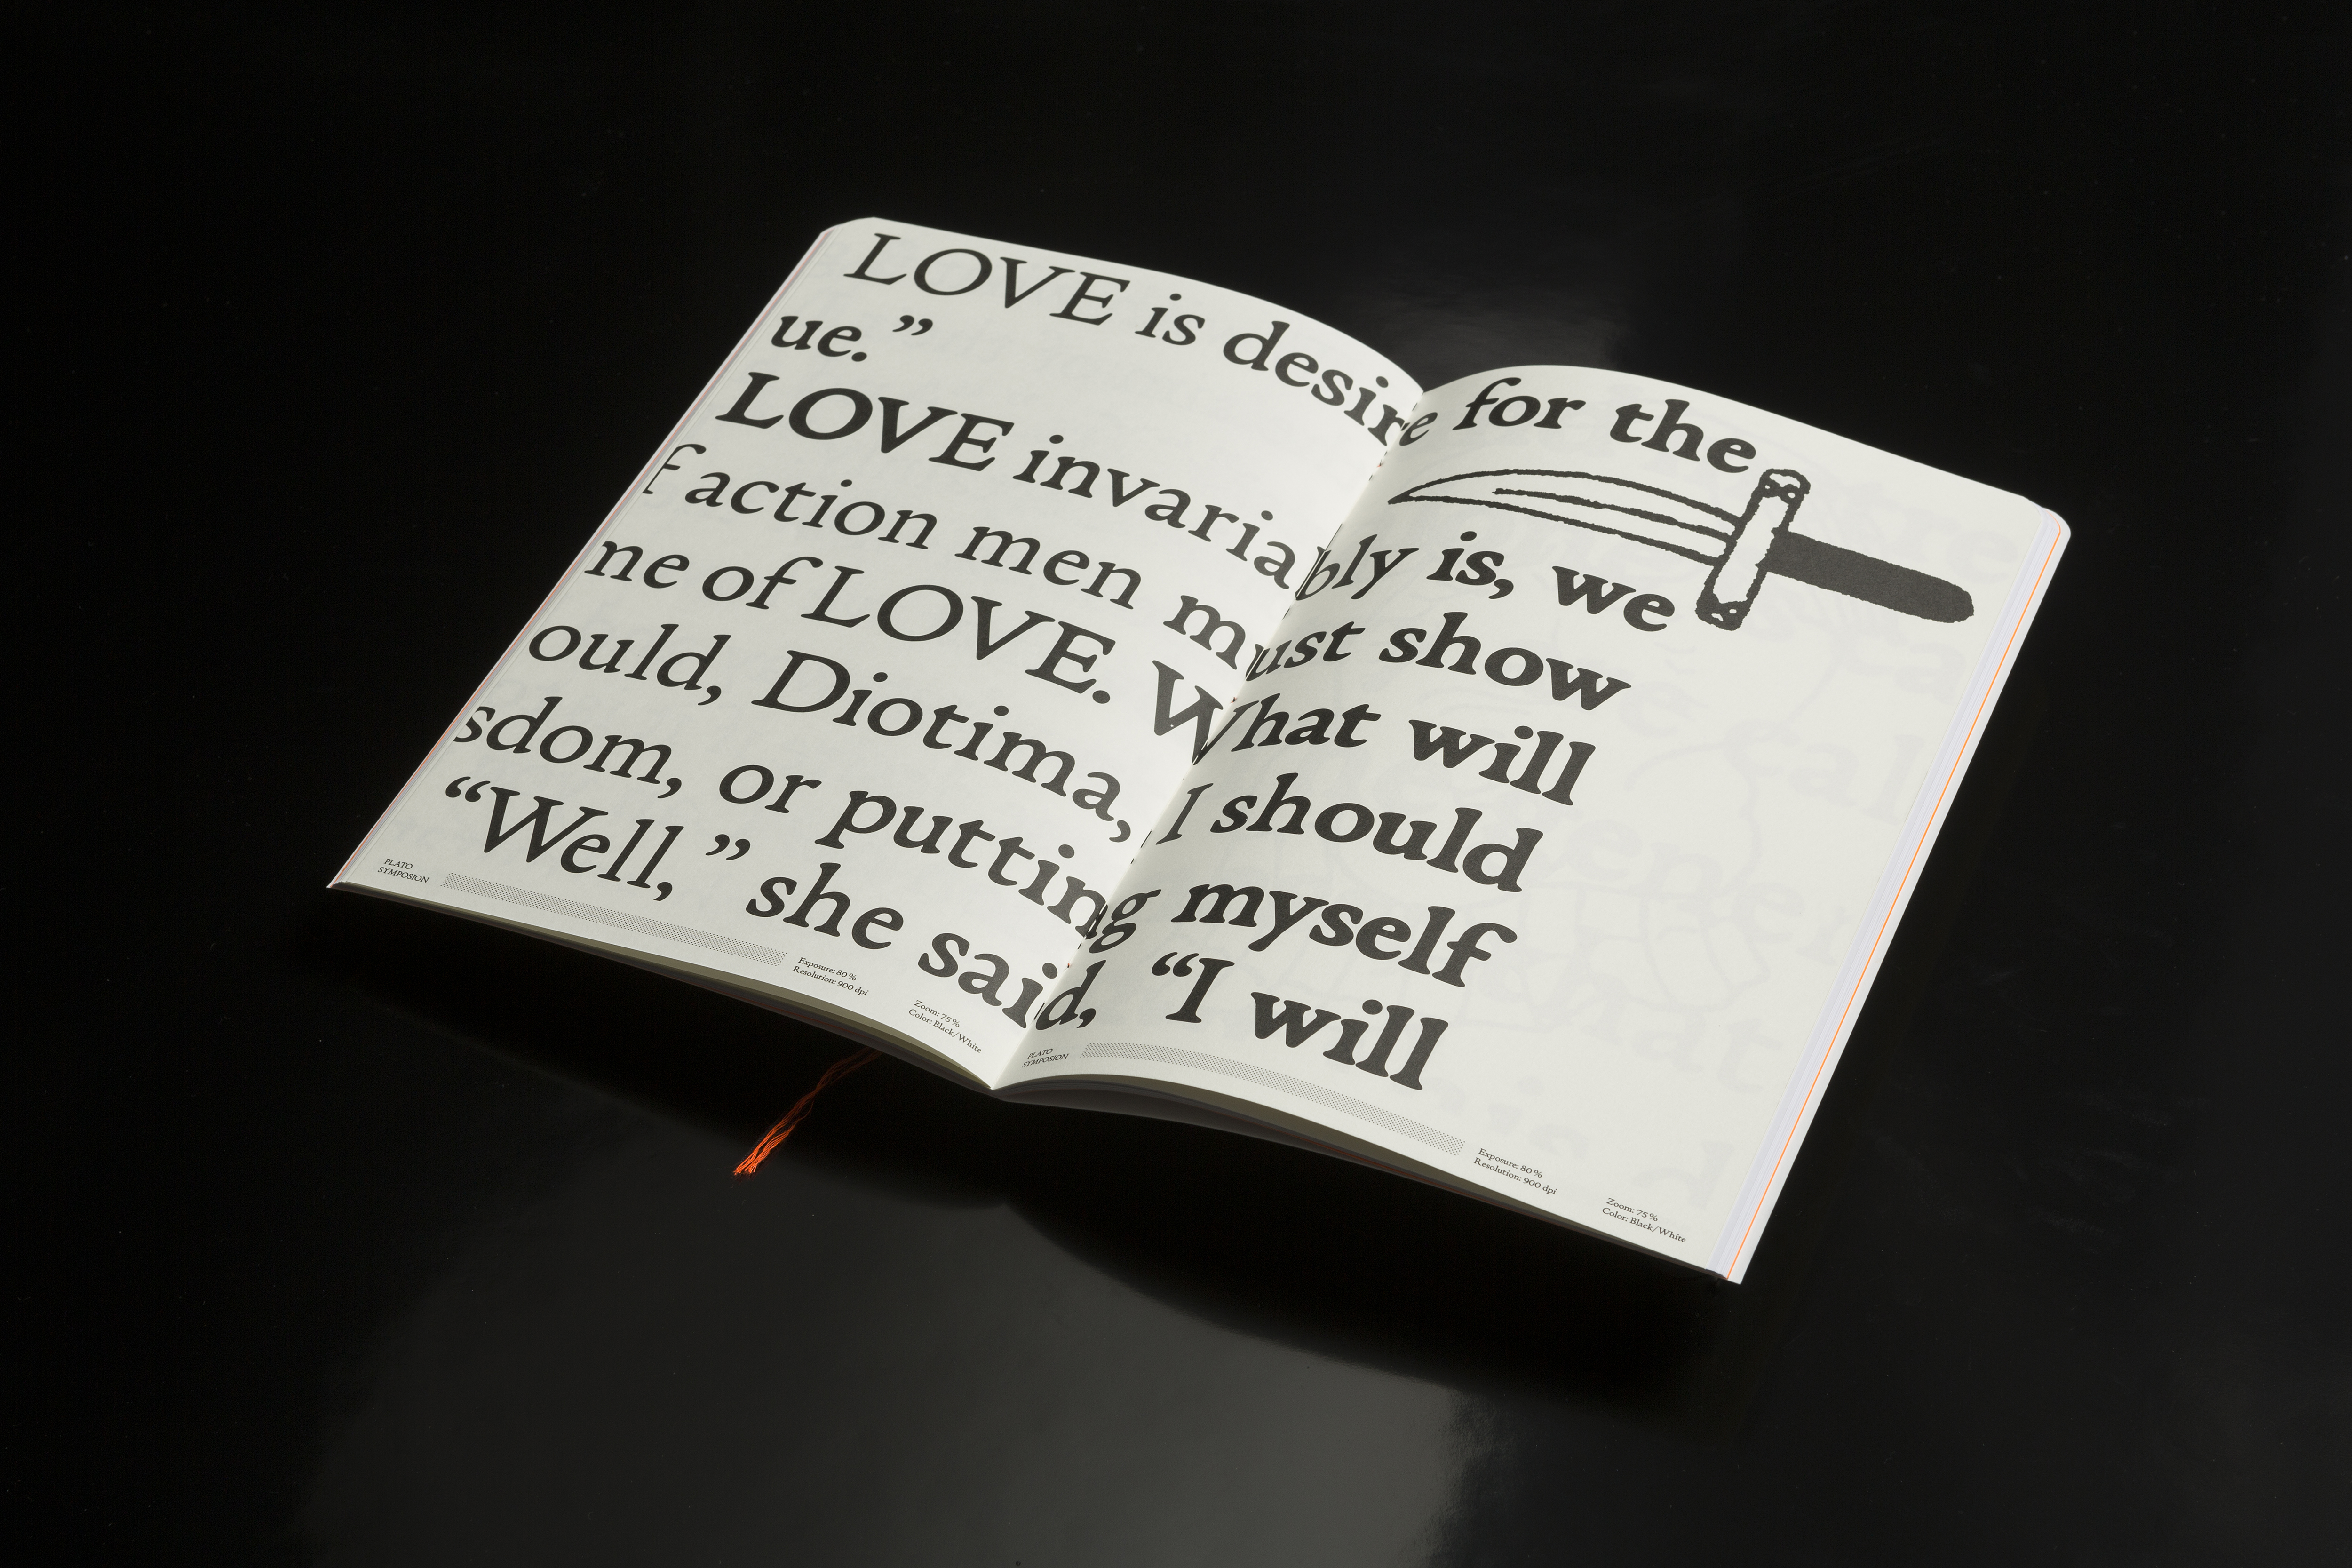 LOVE is desire for the
ue.”
LOVE invariably is, we
f action men must show
ne of LOVE. What will
ould, Diotima, I should
sdom, or putting myself
“Well,” she said, “I will
PLATO
SYMPOSION
Exposure: 80 %
Resolution: 900 dpi
Zoom: 75 %
Color: Black/White
PLATO
SYMPOSION
Exposure: 80 %
Resolution: 900 dpi
Zoom: 75 %
Color: Black/White